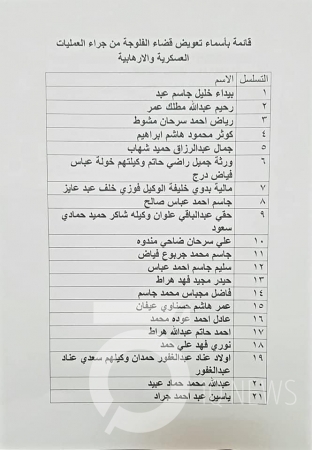 قائمة بأسماء تعويض قضاء الفلوجة من جراء العمليات
العسكرية والارهابية
التسلسل الاسم
١ بيداء خليل جاسم عبد
٢ رحيم عبدالله مطلك عمر
٣ رياض احمد سرحان مشوط
٤ كوثر محمود هاشم ابراهيم
٥ جمال عبدالرزاق حميد شهاب
٦ ورثة جميل راضي حاتم وكيلتهم خولة عباس
فياض درج
٧ مالية بدوي خليفة الوكيل فوزي خلف عبد عايز
٨ جاسم احمد عباس صالح
٩ حقي عبدالباقي علوان وكيله شاكر حميد حمادي
سعود
١٠ علي سرحان ضاحي مندوه
١١ جاسم محمد جربوع فياض
١٢ سليم جاسم احمد عباس
١٣ حيدر مجيد فهد هراط
١٤ فاضل مجباس محمد جاسم
١٥ عمر هاشم حسناوي عيفان
١٦ عادل احمد عوده محمد
١٧ احمد حاتم عبدالله هراط
١٨ نوري فهد علي حمد
١٩ اولاد عناد عبدالغفور حمدان وكيلهم سعدي عناد
عبدالغفور
٢٠ عبدالله محمد حماد عبيد
٢١ ياسين عبد احمد جراد
NEWS